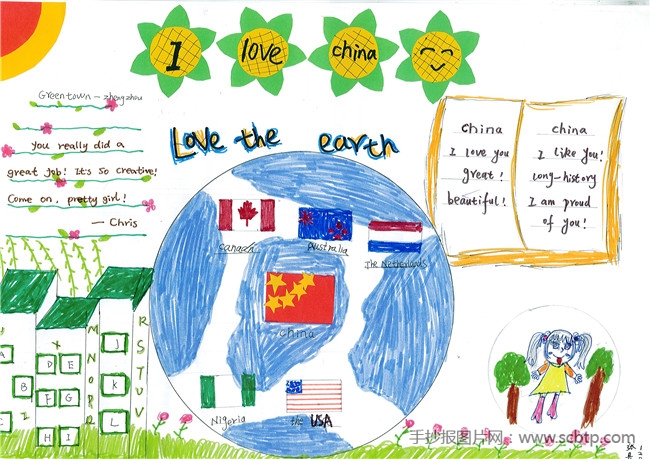 I love china
Greentown - zhengzhou
you really did a
great job! It's so creative!
Come on, pretty girl!
— Chris
Love the earth
china
I love you
great!
beautiful!
china
I like you!
long-history
I am proud
of you!
Canada
Australia
The Netherlands
china
Nigeria
the USA
D E
F G
H I
M N O P Q
J
K
L
R S T U V
手抄报图片网:www.scbtp.com